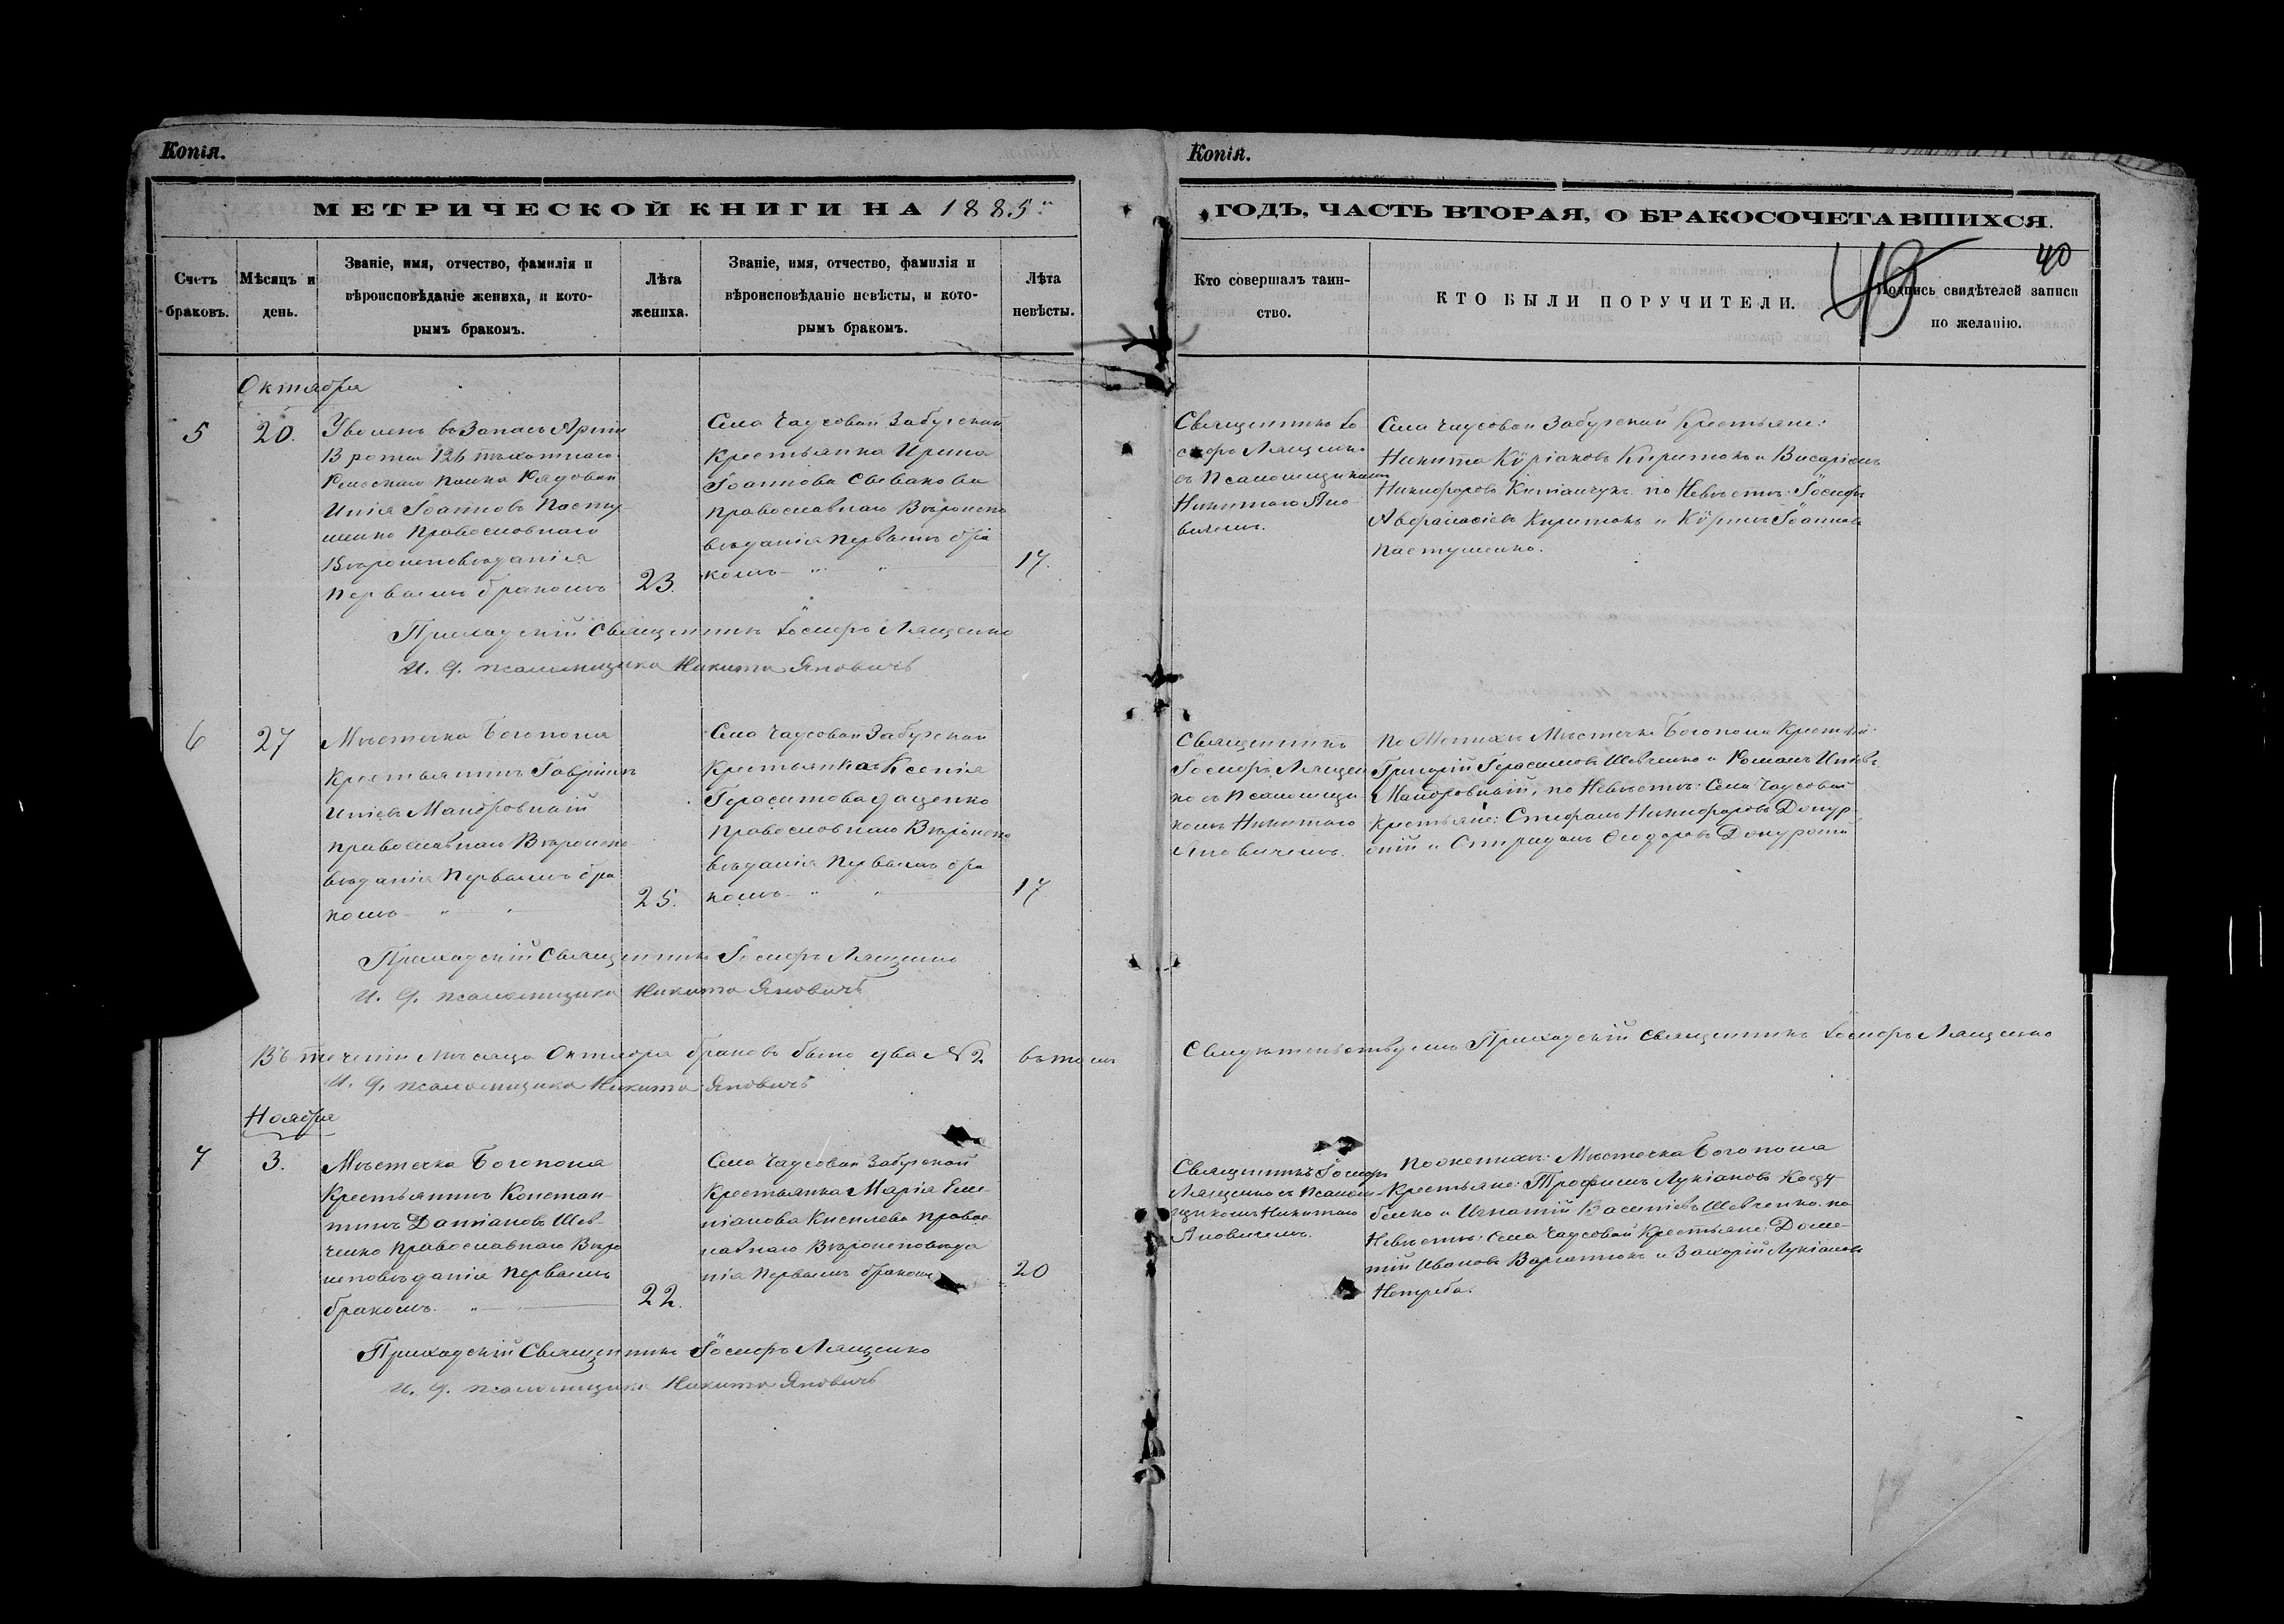 Копія.
МЕТРИЧЕСКОЙ КНИГИ НА 1885
Счетъ браковъ.
Мѣсяцъ и день.
Званіе, имя, отчество, фамилія и
вѣроисповѣданіе жениха, и кото-
рымъ бракомъ.
Лѣта
жениха.
Званіе, имя, отчество, фамилія и
вѣроисповѣданіе невѣсты, и кото-
рымъ бракомъ.
Лѣта
невѣсты.
Октября
5
20.
въ Запасъ Арміи
126 пѣхотнаго
полка Рядовой
Іоанновъ Пасту-
шенко Православнаго
Вѣроисповѣданія
первымъ бракомъ
23.
Села Чаусовой Забугской
Крестьянка Ирина
Іоаннова
православнаго Вѣроиспо
вѣданія первымъ бра
комъ
17.
Приходскій Священникъ Іосифъ Лященко
И. д. псаломщика Никита Яновичъ
6
27
Мѣстечка Богополя
Крестьянинъ Гавріилъ
православнаго Вѣроиспо
вѣданія Первымъ бра
комъ
25.
Села Чаусовой Забугской
Крестьянка Ксенія
Герасимова Даценко
Православнаго Вѣроиспо
вѣданія Первымъ бра
комъ
17
Приходскій Священникъ Іосифъ Лященко
И. д. псаломщика Никита Яновичъ
Въ теченіи мѣсяца Октября браковъ было два №2 въ томъ
И. д. псаломщика Никита Яновичъ
Ноября
7
3.
Мѣстечка Богополя
Крестьянинъ Констан-
тинъ Даміановъ Шев-
ченко православнаго Вѣро
исповѣданія первымъ
бракомъ.
22.
Села Чаусовой Забугской
Крестьянка Марія Еме-
ліанова Киселева правос
лавнаго Вѣроисповѣда
нія первымъ бракомъ
20
Приходскій Священникъ Іосифъ Лященко
И. д. псаломщика Никита Яновичъ
Копія.
ГОДЪ, ЧАСТЬ ВТОРАЯ, О БРАКОСОЧЕТАВШИХСЯ.
40
Кто совершалъ таин-
ство.
КТО БЫЛИ ПОРУЧИТЕЛИ.
Подпись свидѣтелей записи
по желанію.
Священникъ Іо
сифъ Лященко
съ Псаломщикомъ
Никитою Яно-
вичемъ.
Села Чаусовой Забугской Крестьяне:
Никита Кѵріаковъ Киритокъ и Висаріонъ
Никифоровъ по Невѣстѣ: Іосифъ
Киритокъ и Іоанновъ
Пастушенко.
Священникъ
Іосифъ Лящен
ко съ Псаломщи
комъ Никитою
Яновичемъ.
По Женихѣ Мѣстечка Богополя
Григорій Герасимовъ Шевченко и Романъ
по Невѣстѣ: Села Чаусовой
Крестьяне: Стефанъ Никифоровъ
и Спиридонъ Ѳеодоровъ
Свидѣтельствуемъ Приходскій Священникъ Іосифъ Лященко
Священникъ Іосифъ
Лященко съ Псалом-
щикомъ Никитою
Яновичемъ.
По женихѣ: Мѣстечка Богополя
Крестьяне: Трофимъ Лукіановъ Коцу-
бенко и Игнатій Василіевъ Шевченко. по
Невѣстѣ: Села Чаусовой Крестьяне: Доме-
тій Ивановъ и Захарій Лукіановъ
Нетреба.